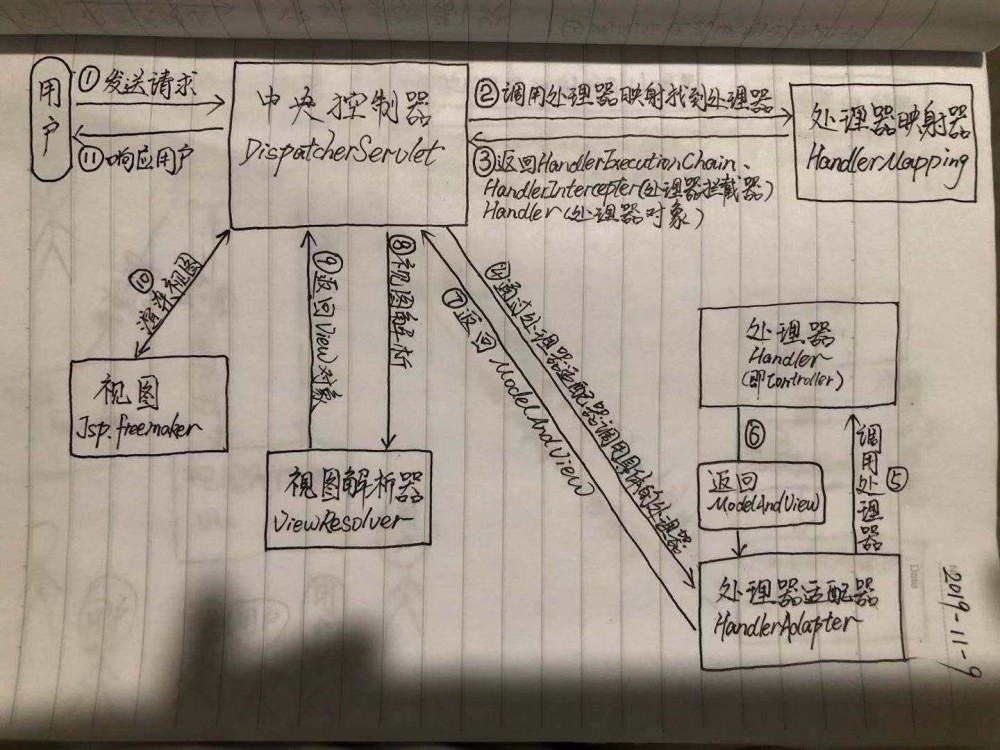 用户
① 发送请求
⑪ 响应用户
中央控制器
DispatcherServlet
② 调用处理器映射找到处理器
③ 返回HandlerExecutionChain、
HandlerIntercepter(处理器拦截器)
Handler(处理器对象)
处理器映射器
HandlerMapping
④ 通过处理器适配器调用具体的处理器.
⑤ 调用处理器
处理器
Handler
(即Controller)
⑥
返回
ModelAndView
处理器适配器
HandlerAdapter
⑦ 返回ModelAndView
⑧ 视图解析
⑨ 返回View对象
视图解析器
ViewResolver
⑩ 渲染视图
视图
Jsp.freemaker
Date
2019-11-9